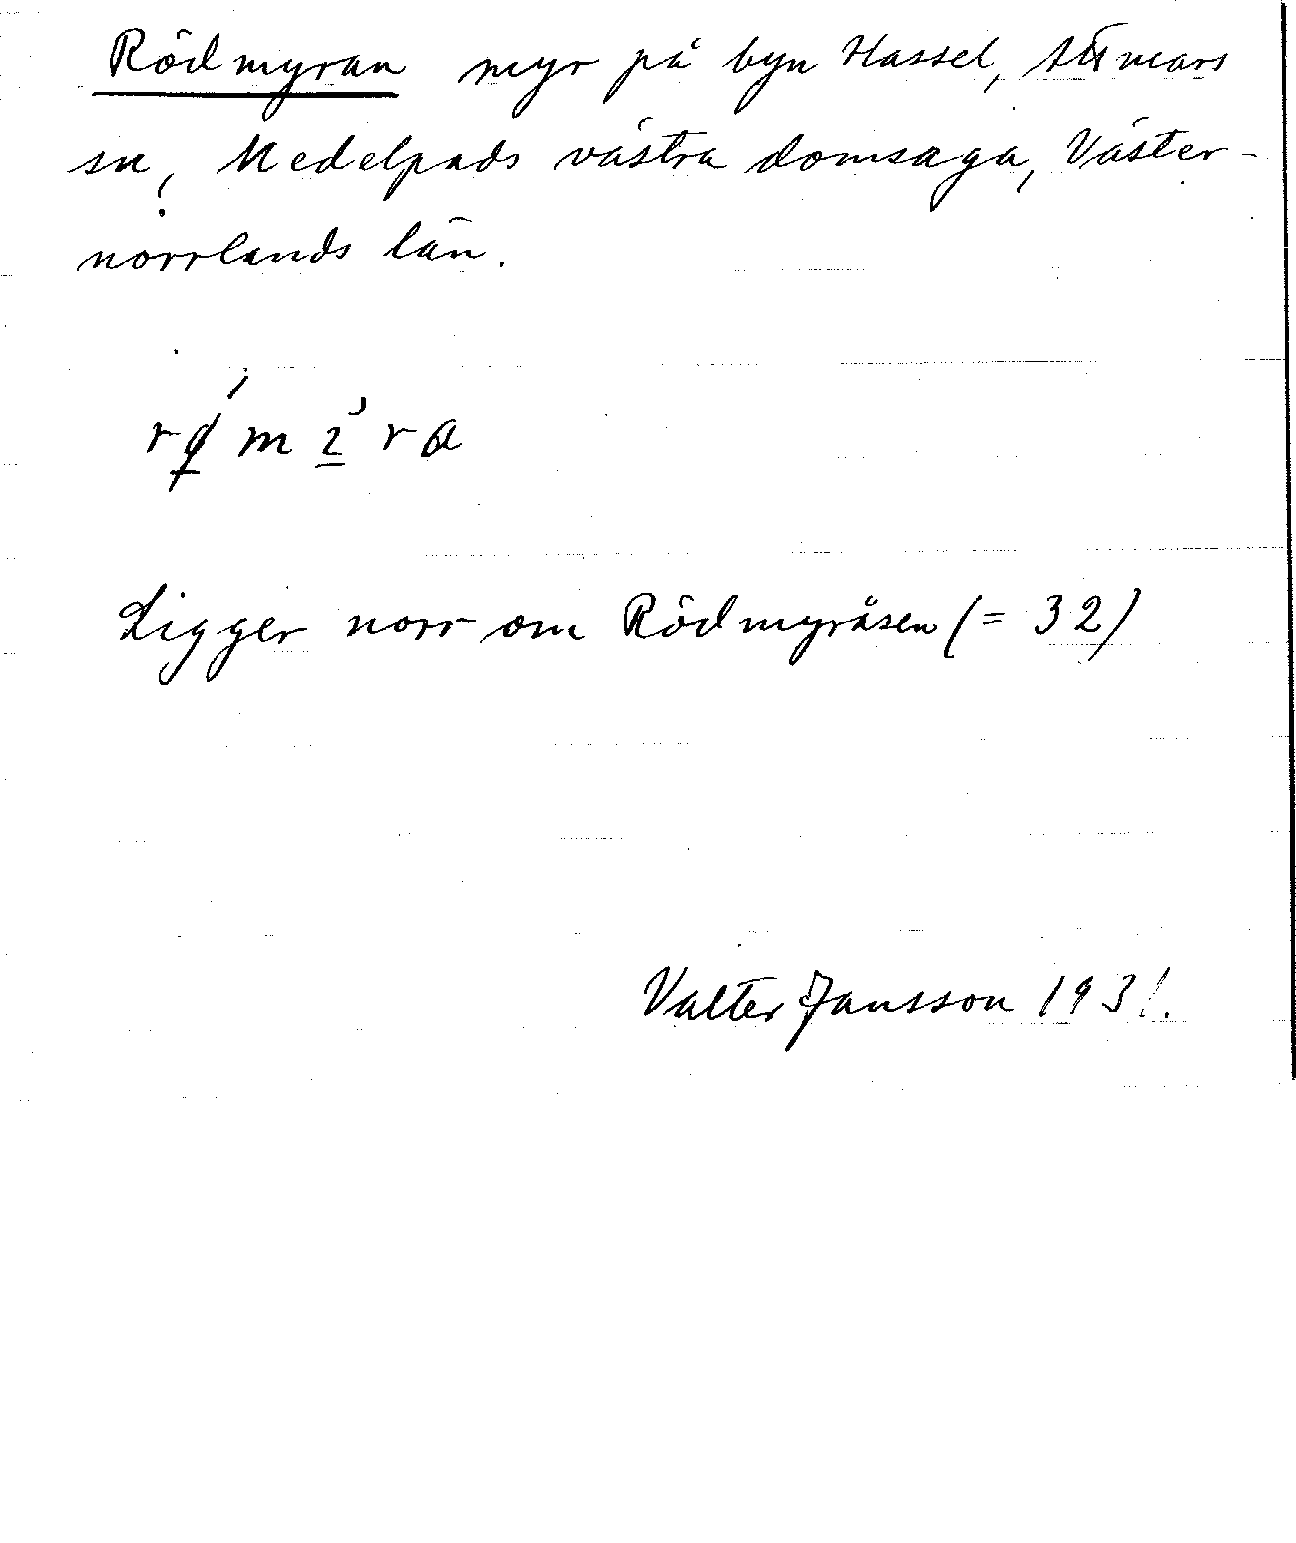 Rödmyran myr på byn Hassel, Attmars
sn, Medelpads västra domsaga, Väster-
norrlands län.
Ligger norr om Rödmyråsen (= 32)
Valter Jansson 1931.